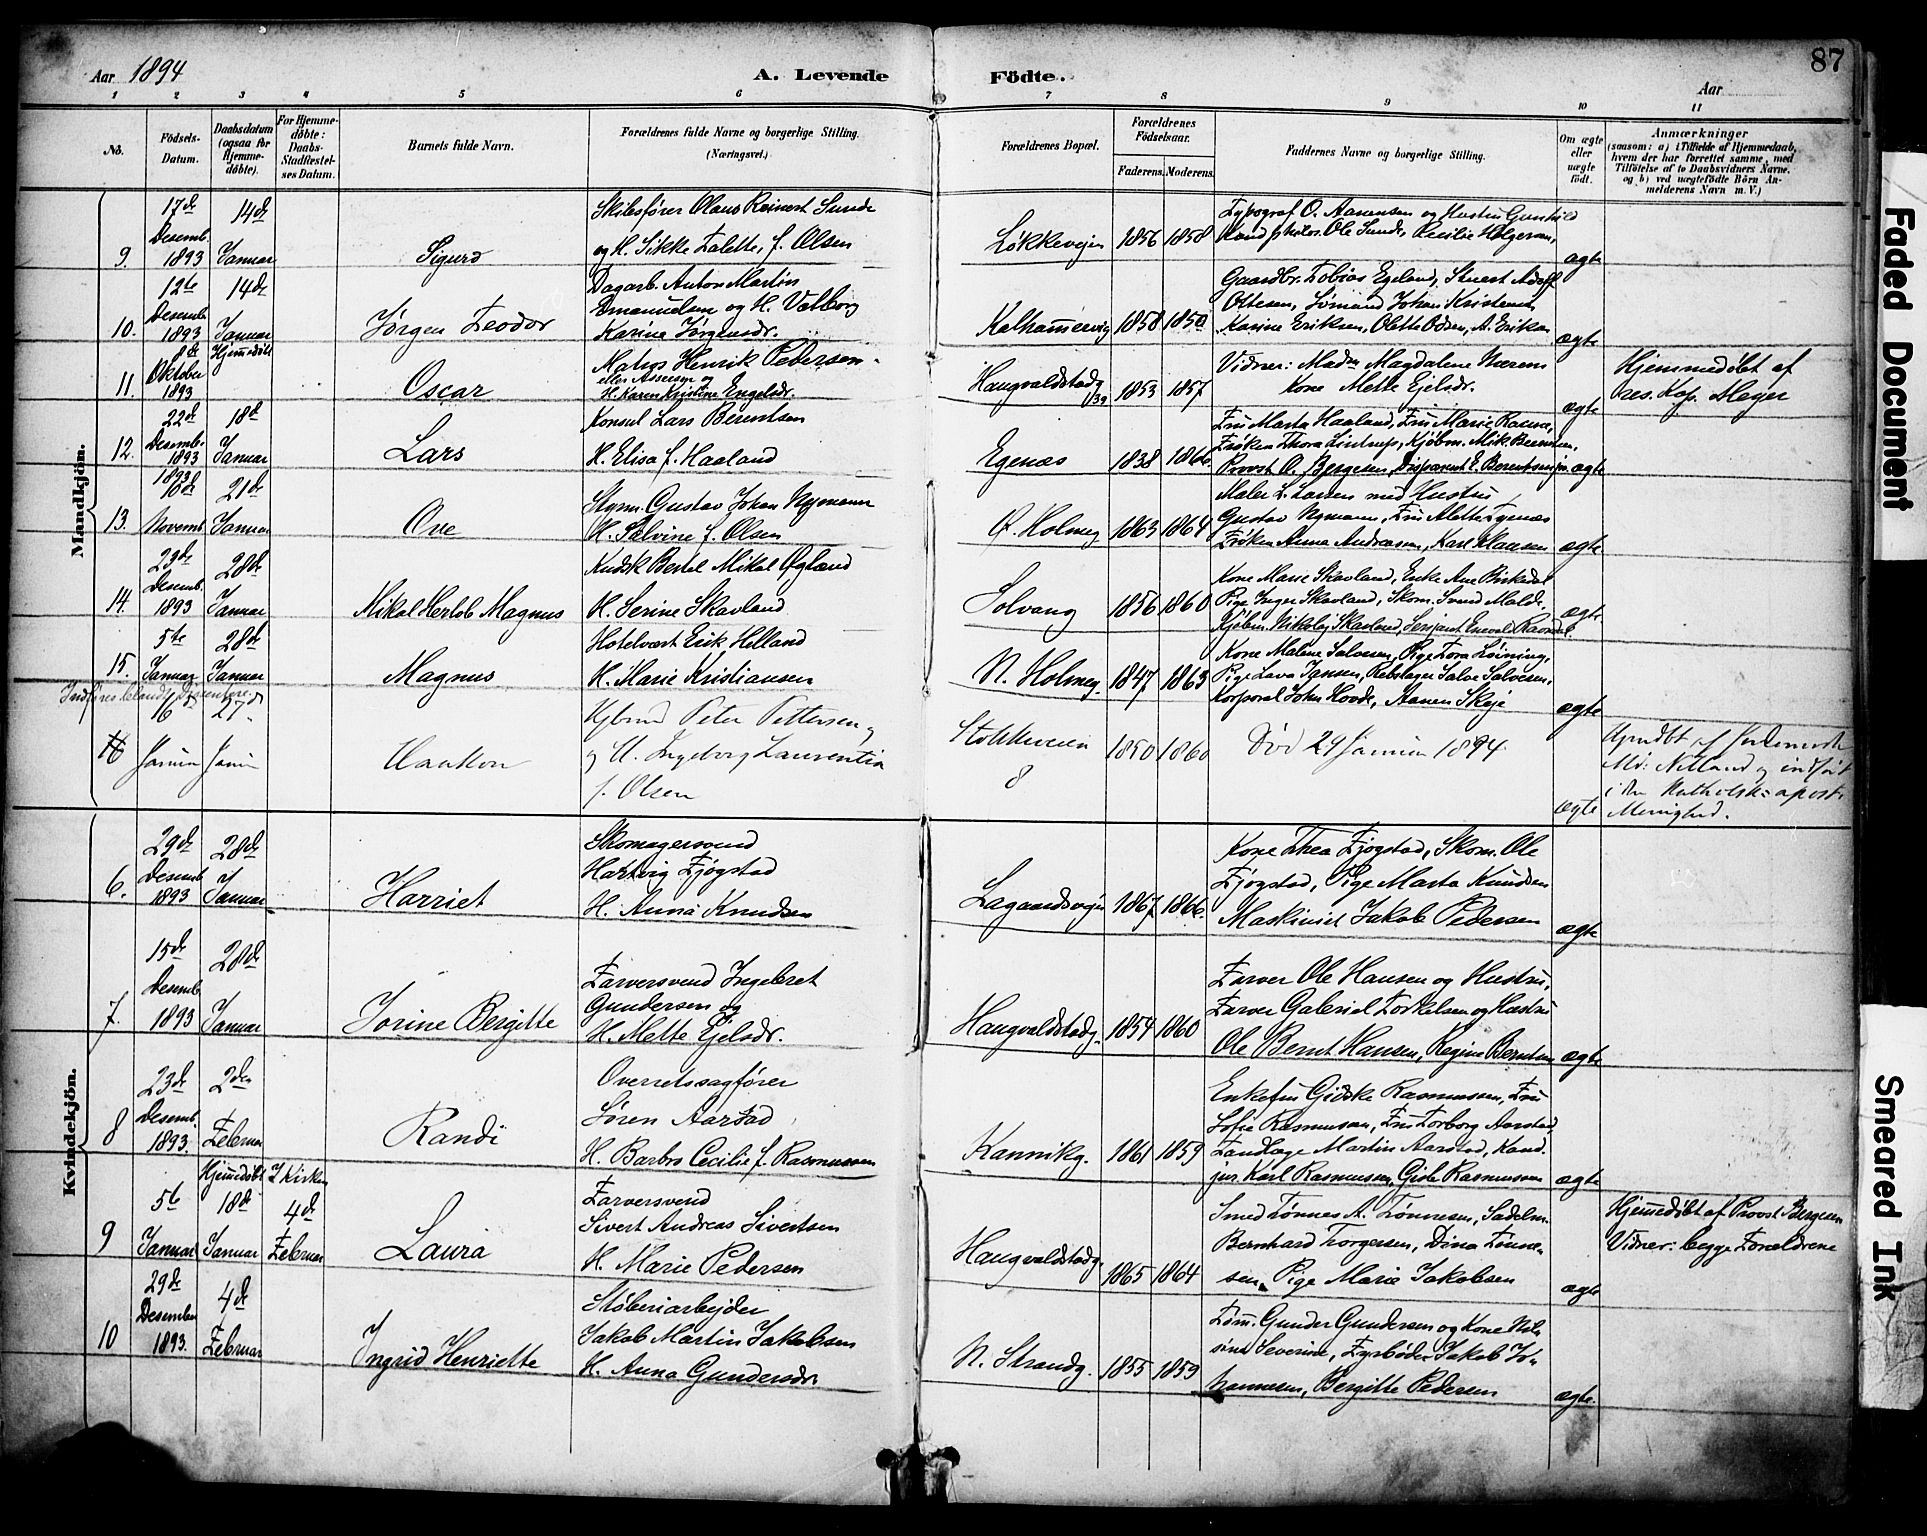 87
Aar 1894
A. Levende Födte.
Aar
1 2 3 4 5 6 7 8 9 10 11
No.
Födsels-Datum.
Daabsdatum (ogsaa for Hjemme-döbte).
For Hjemme-döbte: Daabs-Stadfæstel-ses Datum.
Barnets fulde Navn.
Forældrenes fulde Navne og borgerlige Stilling. (Næringsvei.)
Forældrenes Bopæl.
Forældrenes Födselsaar.
Faderens. Moderens.
Faddernes Navne og borgerlige Stilling.
Om ægte eller uægte födt.
Anmærkninger
(saasom: a) i Tilfælde af Hjemmedaab,
hvem der har forrettet samme, med
Tilföielse af to Daabsvidners Navne.
og b) ved uægtefödte Börn An-
melderens Navn m. V.)
Mandkjön.
9. 17de Desemb. 1893 14de Januar
Sigurd
Skibsfører Olaus Reinert Sunde
og H. Sikke Talette, f. Olsen
Løkkevejen 1856 1858
Typograf O. Aanensen og Hustru Gunhild
Kand. photos. Ole Sunde, Cecilie Holgersen,
ægte
10. 12te Desemb. 1893 14de Januar
Jørgen Teodor
Dagarb. Anton Martin
Emanuelsen og H. Valborg
Karine Jørgensdr.
Kalhammervig 1858 1850
Gaardbr. Tobias Egeland, Stuert Adolf
Ottesen, Sømand Johan Kristensen
Karine Eriksen, Olette Olsen, A. Eriksen
ægte
11. 8de Oktober 1893 Hjemmedøbt
Oscar
Matros Henrik Pedersen
eller Assersen og
H. Karen Kristine Engelsdr.
Haugvaldstadg. 39 1853 1857
Vidner: Madm Magdalene Nærem
Kone Mette Ejelsdr.
ægte
Hjemmedøbt af
res. Kap. Meyer
12. 22de Desemb. 1893 18de Januar
Lars
Konsul Lars Berentsen
H. Elisa f. Haaland
Egenæs 1838 1866.
Fru Marta Haaland, Fru Marie Rasmus,
Frøken Thora Lintrup, Kjøbm. Mik Berentsen,
Provst O. Bergesen, Disponent E. Berentsen jr.
ægte
13. 1893 10de Novemb. 21de Januar
Ove
Styrm. Gustav Johan Nymann
H. Salvine f. Olsen
Ø. Holmeg 1863 1864
Maler L. Larsen med Hustru
Gustav Nymann, Fru Alette Egenæs
Frøken Anna Andreasen, Karl Klausen
ægte
14. 23de Desemb. 1893 28de Januar
Mikal Herlob Magnus
Kudsk Bertel Mikal Øgland
H. Serine Skavland
Solvang 1856 1860
Kone Marie Skavland, Enke Ane Birkedal
Pige Inger Skavland, Skom. Svend Malde,
Kjøbm. Nikolaj Skavland, Sersjant Enevald Ravndal
ægte
15. 5te Januar 28de Januar
Magnus
Hotelvært Erik Helland
H. Marie Kristiansen
N. Holmeg. 1847 1863
Kone Malene Salvesen, Pige Tora Løining,
Pige Lava Jansen, Rebslager Salve Salvesen,
Korporal John Hovde, Aanen Skeje
ægte
Indføres blandt Dissentere
16 16 Januar 27 Januar
Haakon
Peter Pettersen
og H. Ingeborg Laurentia
f. Olsen
Stokkeveien 8 1850 1860
Død 29 Januar 1894.
ægte
Njemdbt af
Md: Netland og indført
i den Katholsk=apost.
Menighed.
Kvindekjön.
6. 29de Desemb 1893 28de Januar
Harriet
Skomagersvend
Hartvig Fjøgstad
H. Anna Knudsen
Lagaardsvejen 1867 1866.
Kone Thea Fjøgstad, Skom. Ole
Fjøgstad, Pige Marta Knudsen
Maskinist Jakob Pedersen
ægte
7. 15de Desemb. 1893 28de Januar
Jorine Bergitte
Farversvend Ingebret
Gundersen og
H. Mette Ejelsdr.
Haugvaldstadg. 1854 1860
Farver Ole Hansen og Hustru,
Farver Gabriel Torkelsen og Hustru
Ole Bernt Hansen, Regine Berntsen
ægte
8 23de Desemb. 1893. 2den Februar
Randi
Overretssagfører
Søren Aarstad
H. Barbro Cecilie f. Rasmussen
Kannikg. 1861 1859
Enkefru Gidske Rasmussen, Fru
Sofie Rasmussen, Fru Torborg Aarstad
Tandlæge Martin Aarstad, Kand.
jur. Karl Rasmussen, Gisle Rasmussen
ægte
9 5te Januar Hjemmedøbt 18de Januar I Kirken 4de Februar
Laura
Farversvend
Sivert Andreas Sivertsen
H. Marie Pedersen
Haugvaldstadg. 1865 1864
Smed Tønnes A. Tønnesen, Sadelm.
Bernhard Torgersen, Dina Tønne-
sen, Pige Marie Jakobsen
ægte
Hjemmedøbt af Provst Bergesen
Vidner: begge Forældrene
10 29de Desember 1893. 4de Februar
Ingrid Henriette
Støberiarbejder
Jakob Martin Jakobsen
H. Anna Gundersdr
N. Strandg. 1855 1859
Tøm. Gunder Gundersen og Kone Mal-
ene Severine, Fyrbøder Jakob Jo-
hannesen, Bergitte Pedersen
ægte
Faded Document
Smeared Ink